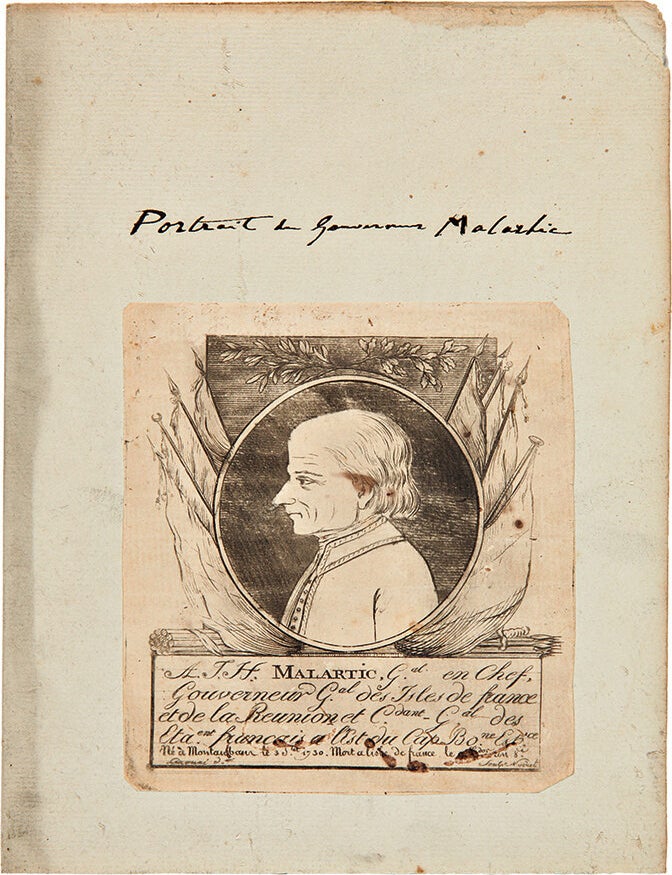 Portrait du Gouverneur Malartic
A. J. H. MALARTIC, G.al en Chef,
Gouverneur G.al des Isles de france
et de la Reunion et C.dant G.al des
Eta.ent francais a l'Est du Cap Bo.ne Esp.ce
Né à Montauban le 3 J.et 1730. Mort a l'isle de france le
Sculp.